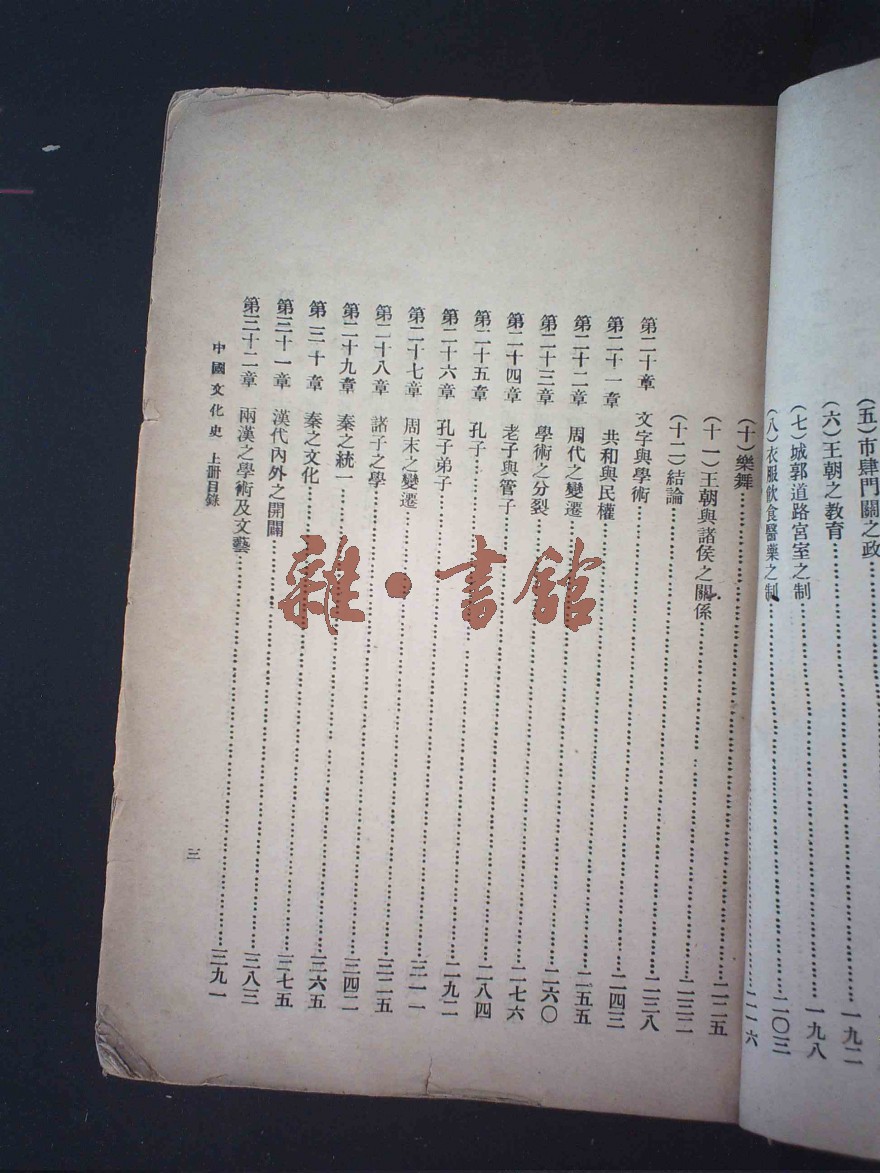 (五)市肆門關之政……一九二
(六)王朝之教育……一九八
(七)城郭道路宮室之制……二〇三
(八)衣服飲食醫藥之制……二一六
(十)樂舞……二二五
(十一)王朝與諸侯之關係……二三二
(十二)結論……二三八
第二十章 文字與學術……二四三
第二十一章 共和與民權……二五五
第二十二章 周代之變遷……二六〇
第二十三章 學術之分裂……二七六
第二十四章 老子與管子……二八四
第二十五章 孔子……二九二
第二十六章 孔子弟子……三一一
第二十七章 周末之變遷……三二五
第二十八章 諸子之學……三四二
第二十九章 秦之統一……三六五
第三十章 秦之文化……三七五
第三十一章 漢代內外之開闢……三八三
第三十二章 兩漢之學術及文藝……三九一
中國文化史 上冊目錄
三
雜·書館